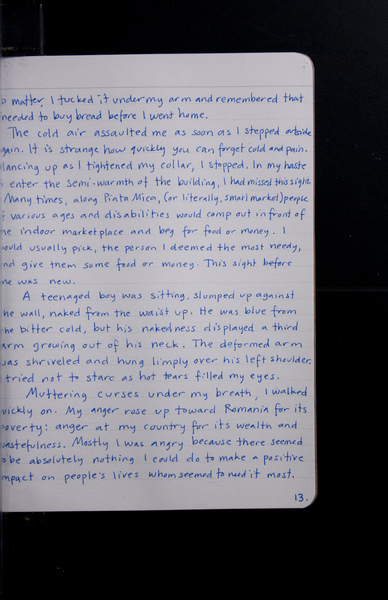 matter, I tucked it under my arm and remembered that
needed to buy bread before I went home.
The cold air assaulted me as soon as I stepped outside
gain. It is strange how quickly you can forget cold and pain.
lancing up as I tightened my collar, I stopped. In my haste
enter the semi-warmth of the building, I had missed this sight.
Many times, along Piata Mica, (or literally, small market) people
f various ages and disabilities would camp out in front of
he indoor marketplace and beg for food or money. I
ould usually pick, the person I deemed the most needy,
nd give them some food or money. This sight before
me was new.
A teenaged boy was sitting, slumped up against
he wall, naked from the waist up. He was blue from
he bitter cold, but his nakedness displayed a third
arm growing out of his neck. The deformed arm
was shriveled and hung limply over his left shoulder.
tried not to stare as hot tears filled my eyes.
Muttering curses under my breath, I walked
uickly on. My anger rose up toward Romania for its
overty: anger at my country for its wealth and
wastefulness. Mostly I was angry because there seemed
o be absolutely nothing I could do to make a positive
mpact on people's lives whom seemed to need it most.
13.